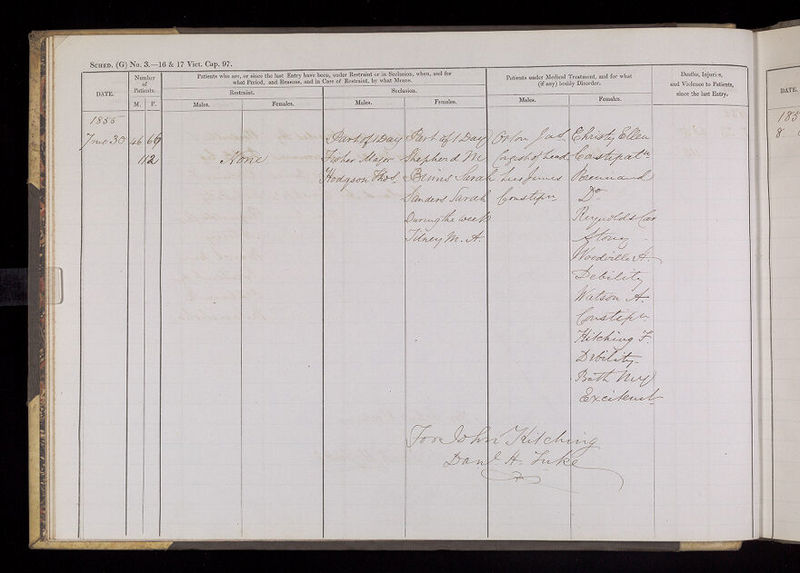 SCHED. (G) No. 3.—16 & 17 Vict. Cap. 97.
DATE.
Number of Patients.
M. F.
Patients who are, or since the last Entry have been, under Restraint or in Seclusion, when, and for
what Period, and Reasons, and in Case of Restraint, by what Means.
Restraint.
Seclusion.
Males. Females. Males. Females.
Patients under Medical Treatment, and for what
(if any) bodily Disorder.
Males. Females.
Deaths, Injuries,
and Violence to Patients,
since the last Entry.
DATE.
1855
46 66 Part of 1 Day Part of 1 Day Orton Jas. Christy Ellen
112 None Fisher Major Shepherd M Congest of head Constipatn
Hodgson Thos. Binns Sarah Lees James
Sanders Sarah Constipn Do
During the week Reynolds Car
Tilney M. A.
Woodville A.
Debility
Watson A.
Constipn
Kitching F.
Debility
Excitemt
For John Kitching
Danl. H. Tuke
185
8